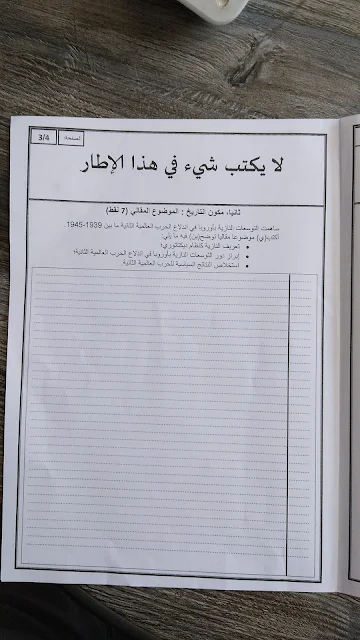 الصفحة: 3/4
لا يكتب شيء في هذا الإطار
ثانيا، مكون التاريخ : الموضوع المقالي (7 نقط)
ساهمت التوسعات النازية بأوروبا في اندلاع الحرب العالمية الثانية ما بين 1939-1945.
أكتب(ي) موضوعا مقاليا توضح(ين) فيه ما يلي:
• تعريف النازية كنظام ديكتاتوري؛
• إبراز دور التوسعات النازية بأوروبا في اندلاع الحرب العالمية الثانية؛
• استخلاص النتائج السياسية للحرب العالمية الثانية